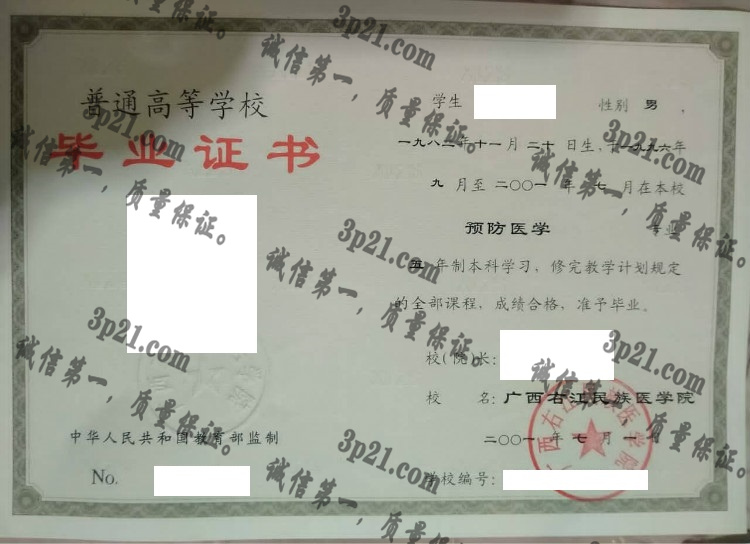 普通高等学校
毕业证书
中华人民共和国教育部监制
No.
学生 性别 男 ,
一九八二年十一月二十日生,于一九九六年
九月至二〇〇一年七月在本校
预防医学 专业
五年制本科学习,修完教学计划规定
的全部课程,成绩合格,准予毕业。
校(院)长:
校 名:广西右江民族医学院
二〇〇一年七月一
学校编号:
3p21.com
诚信第一,质量保证。
3p21.com
诚信第一,质量保证。
3p21.com
诚信第一,质量保证。
3p21.com
诚信第一,质量保证。
3p21.com
诚信第一,质量保证。
3p21.com
诚信第一,质量保证。
3p21.com
诚信第一,质量保证。
3p21.com
诚信第一,质量保证。